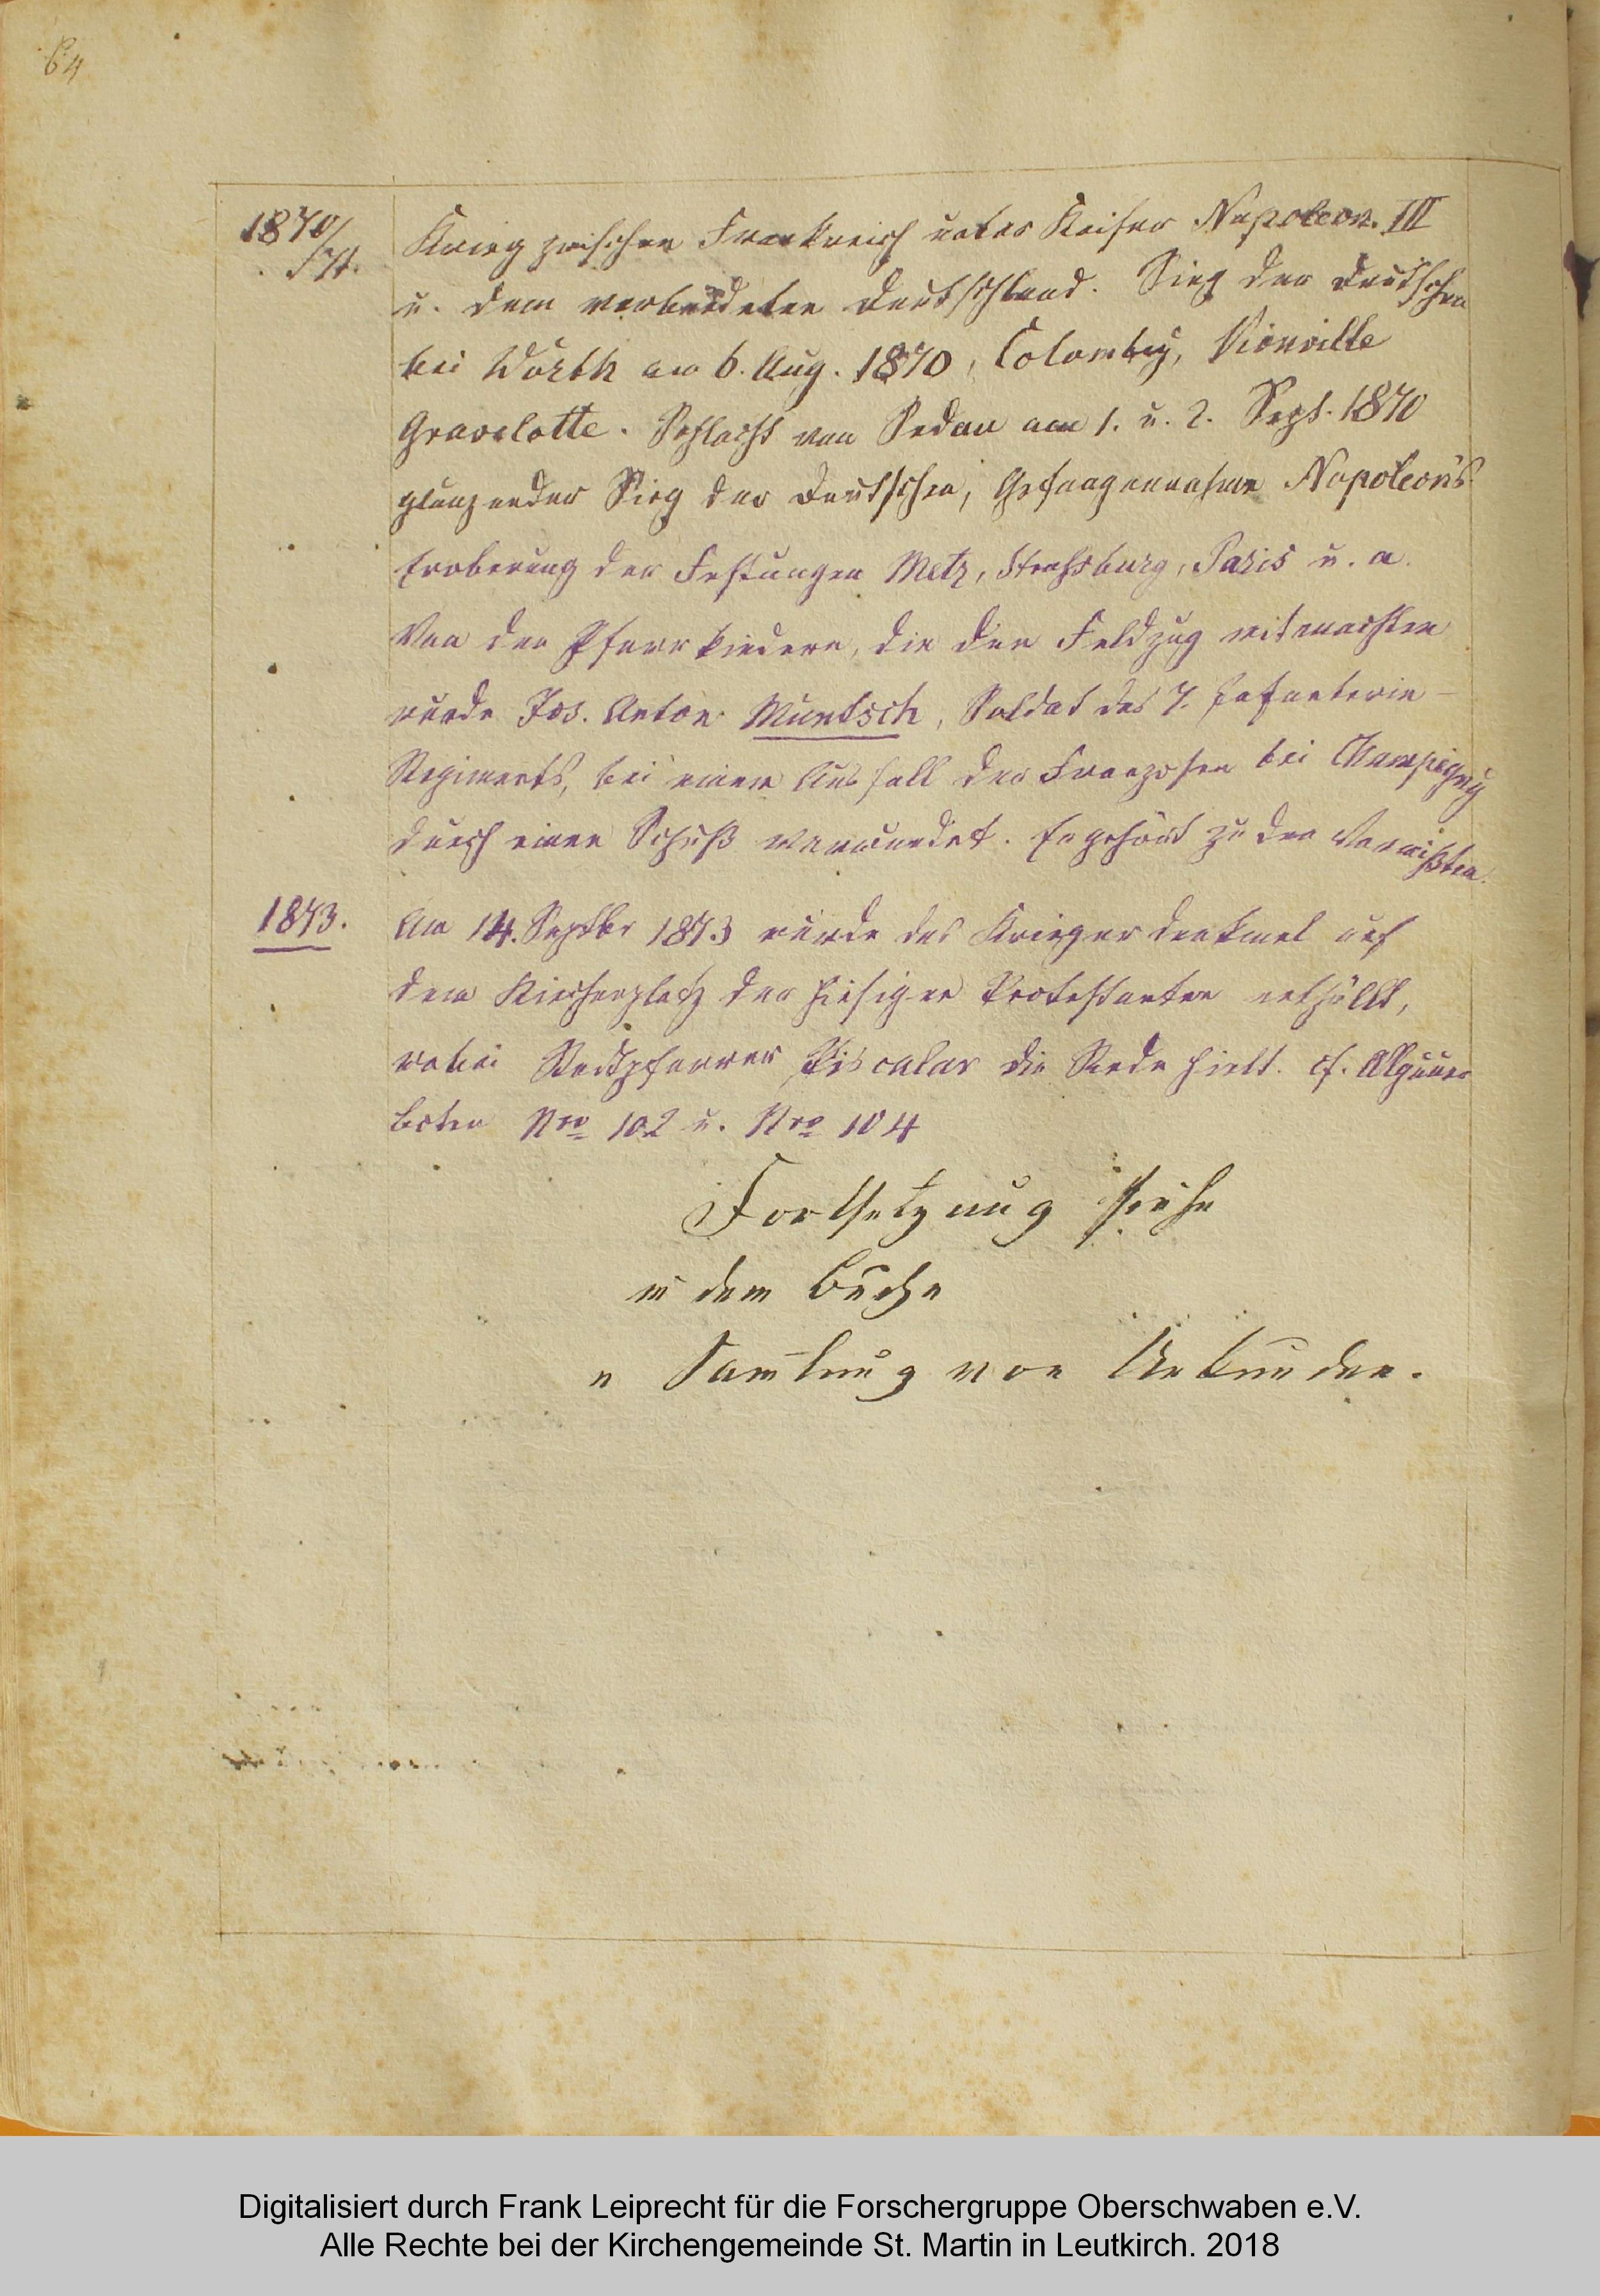 64
1870/
/71.
Krieg zwischen Frankreich unter Kaiser Napoleon III
u. dem verbündeten Deutschland. Sieg der Deutschen
bei Wörth am 6. Aug. 1870, Colombey, Vionville
Gravelotte. Schlacht von Sedan am 1. u. 2. Sept. 1870
glänzender Sieg der Deutschen, Gefangennahme Napoleon's
Eroberung der Festungen Metz, Strassburg, Paris u. a.
Von den Pfarrkindern, die den Feldzug mitmachten
wurde Jos. Anton Muntsch, Soldat des 7. Infanterie-
Regiments, bei einem Ausfall der Franzosen bei Champigny
durch einen Schuß verwundet. Er gehört zu den Vermißten.
1873.
Am 14. Septbr 1873 wurde das Kriegerdenkmal auf
dem Kirchenplatz der hiesigen Protestanten enthüllt,
wobei Stadtpfarrer Piscalar die Rede hielt. cf. Allgäuer
boten Nro 102 u. Nro 104
Fortsetzung siehe
in dem Buche
" Sammlung von Urkunden.
Digitalisiert durch Frank Leiprecht für die Forschergruppe Oberschwaben e.V.
Alle Rechte bei der Kirchengemeinde St. Martin in Leutkirch. 2018